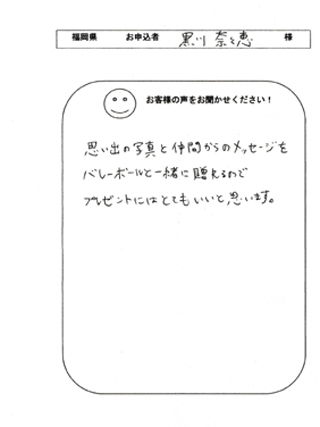 福岡県 お申込者 黒川 奈々恵 様
お客様の声をお聞かせください！
思い出の写真と仲間からのメッセージを
バレーボールと一緒に贈れるので
プレゼントにはとてもいいと思います。